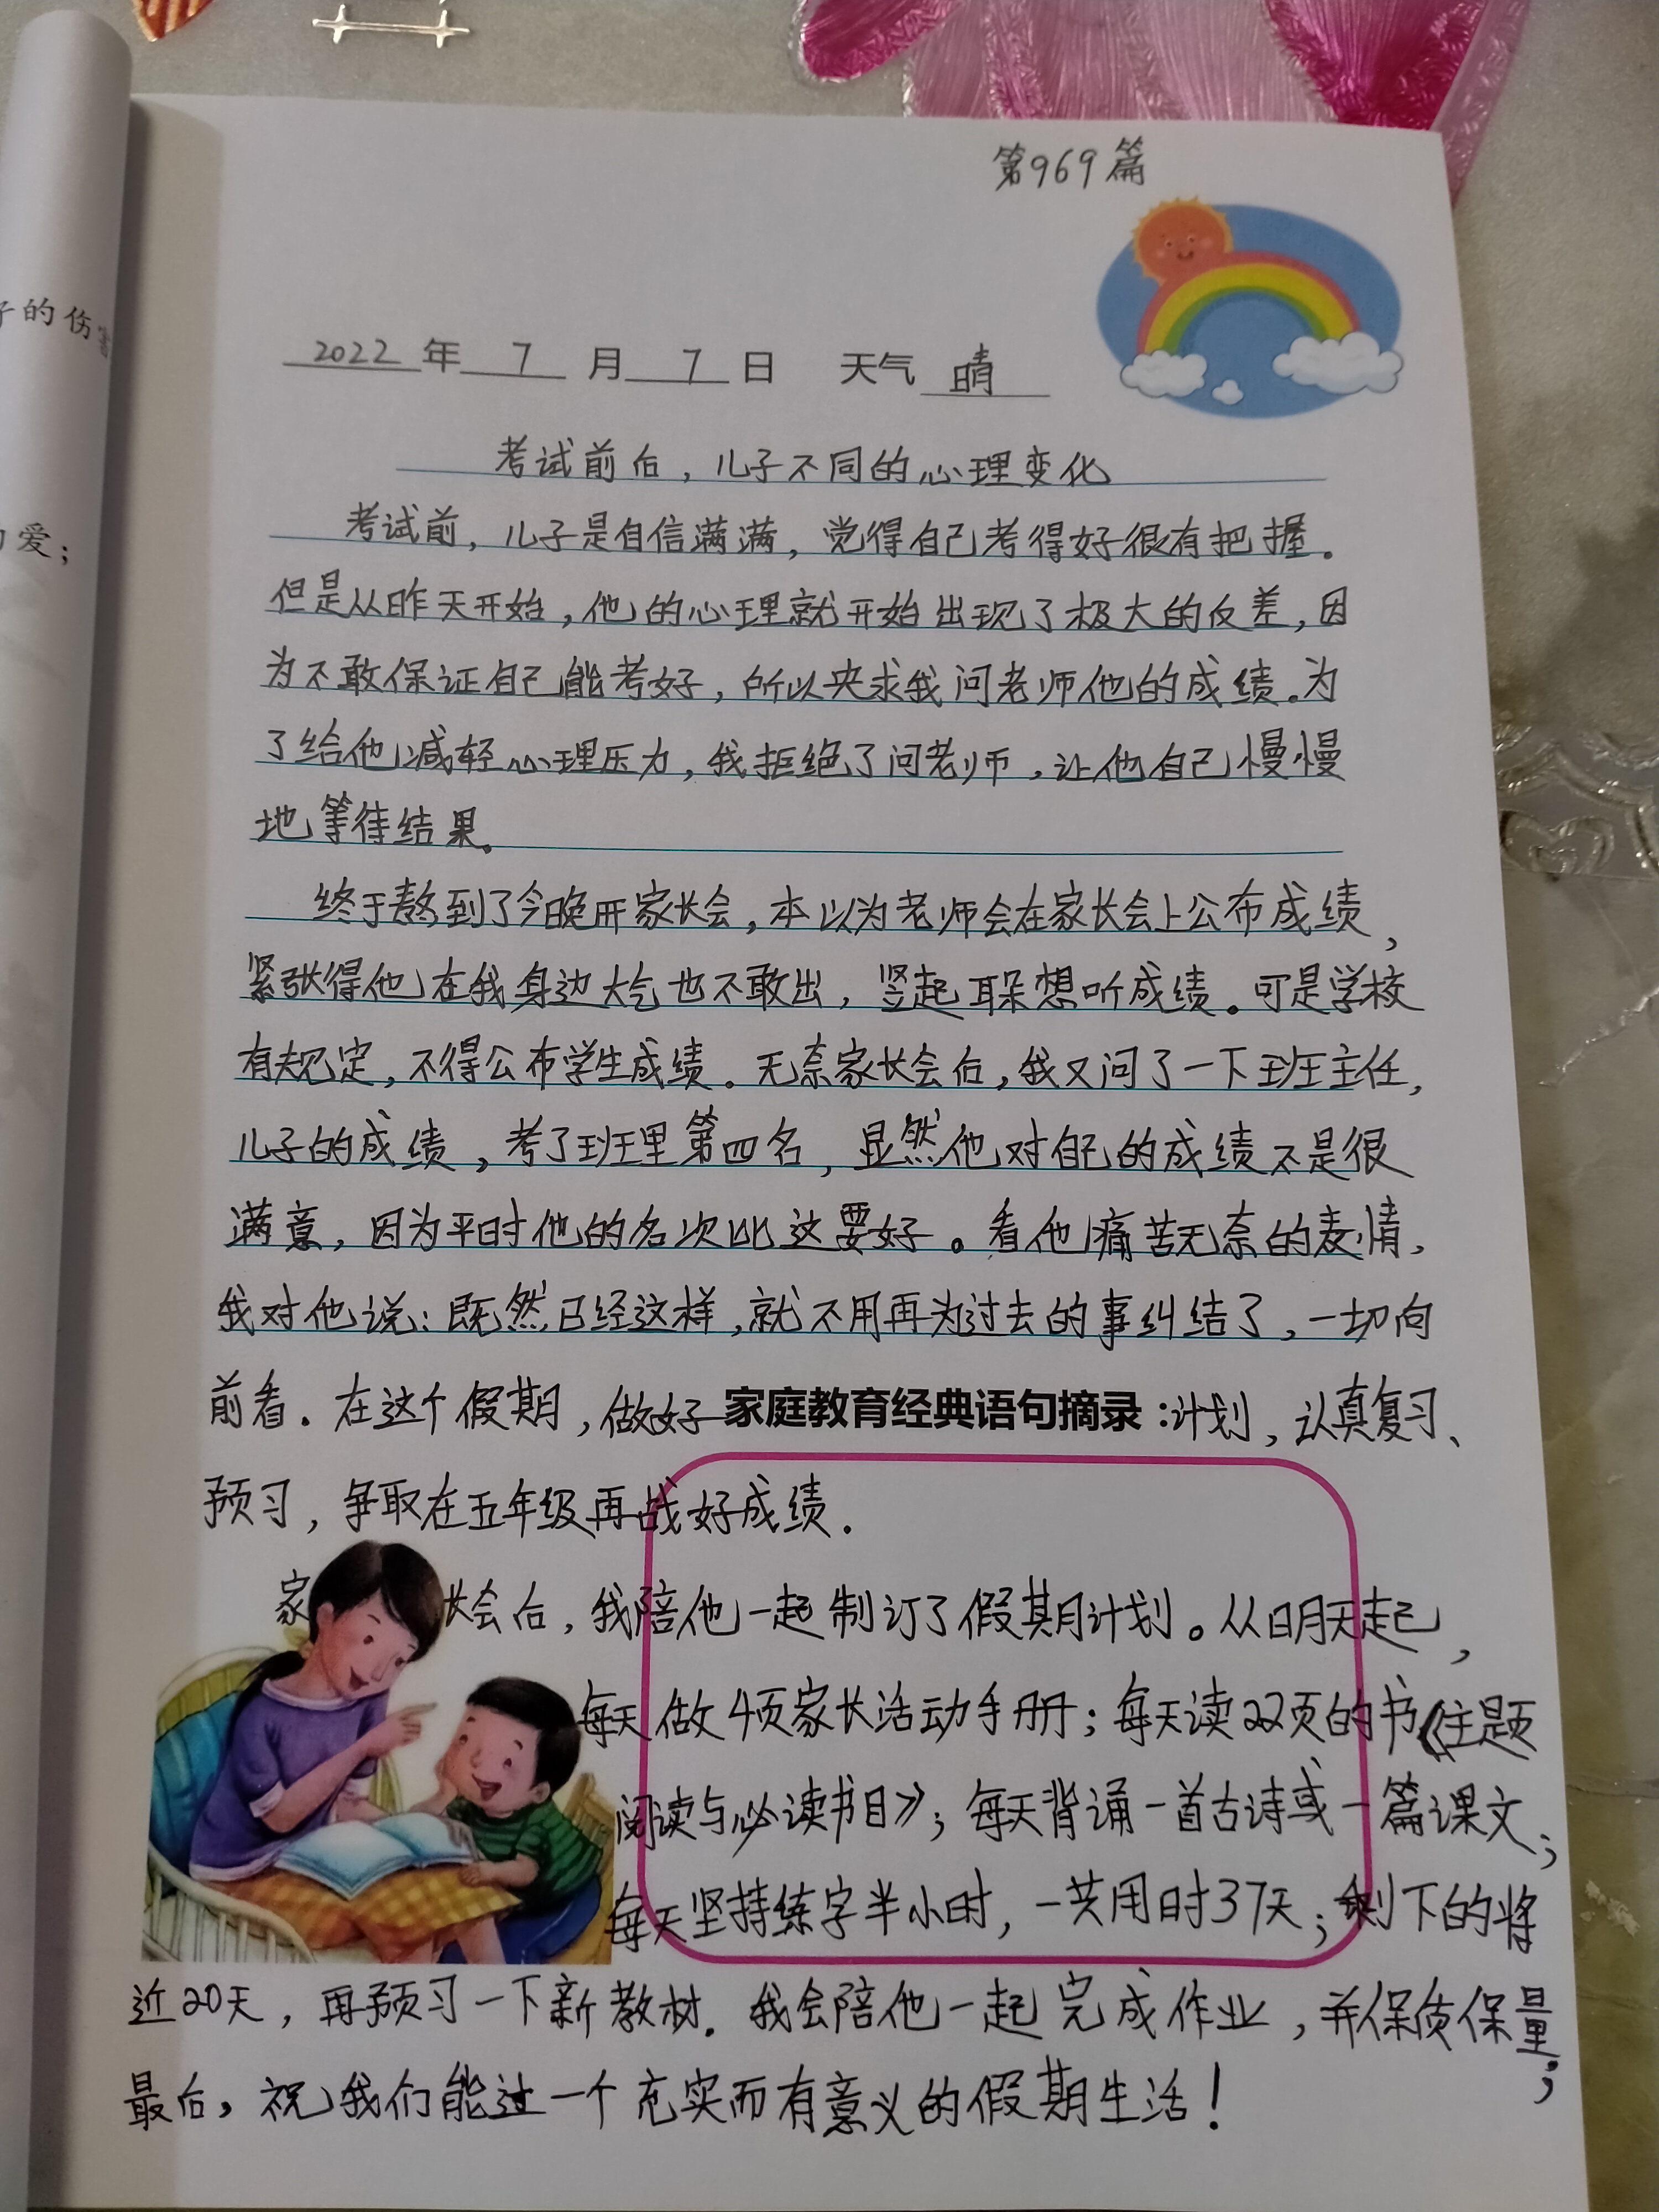 第969篇
子的伤害
爱；
2022年7月7日 天气 晴
考试前后，儿子不同的心理变化
考试前，儿子是自信满满，觉得自己考得好很有把握。
但是从昨天开始，他的心理就开始出现了极大的反差，因
为不敢保证自己能考好，所以央求我问老师他的成绩。为
了给他减轻心理压力，我拒绝了问老师，让他自己慢慢
地等待结果。
终于熬到了今晚开家长会，本以为老师会在家长会上公布成绩，
紧张得他在我身边大气也不敢出，竖起耳朵想听成绩。可是学校
有规定，不得公布学生成绩。无奈家长会后，我又问了一下班主任，
儿子的成绩，考了班里第四名，显然他对自己的成绩不是很
满意，因为平时他的名次比这要好。看他痛苦无奈的表情，
我对他说：既然已经这样，就不用再为过去的事纠结了，一切向
前看。在这个假期，做好 家庭教育经典语句摘录：计划，认真复习、
预习，争取在五年级再战好成绩。
家长会后，我陪他一起制订了假期计划。从明天起，
每天做4项家长活动手册；每天读22页的书《主题
阅读与必读书目》；每天背诵一首古诗或一篇课文；
每天坚持练字半小时，一共用时37天；剩下的将
近20天，再预习一下新教材。我会陪他一起完成作业，并保质保量；
最后，祝我们能过一个充实而有意义的假期生活！